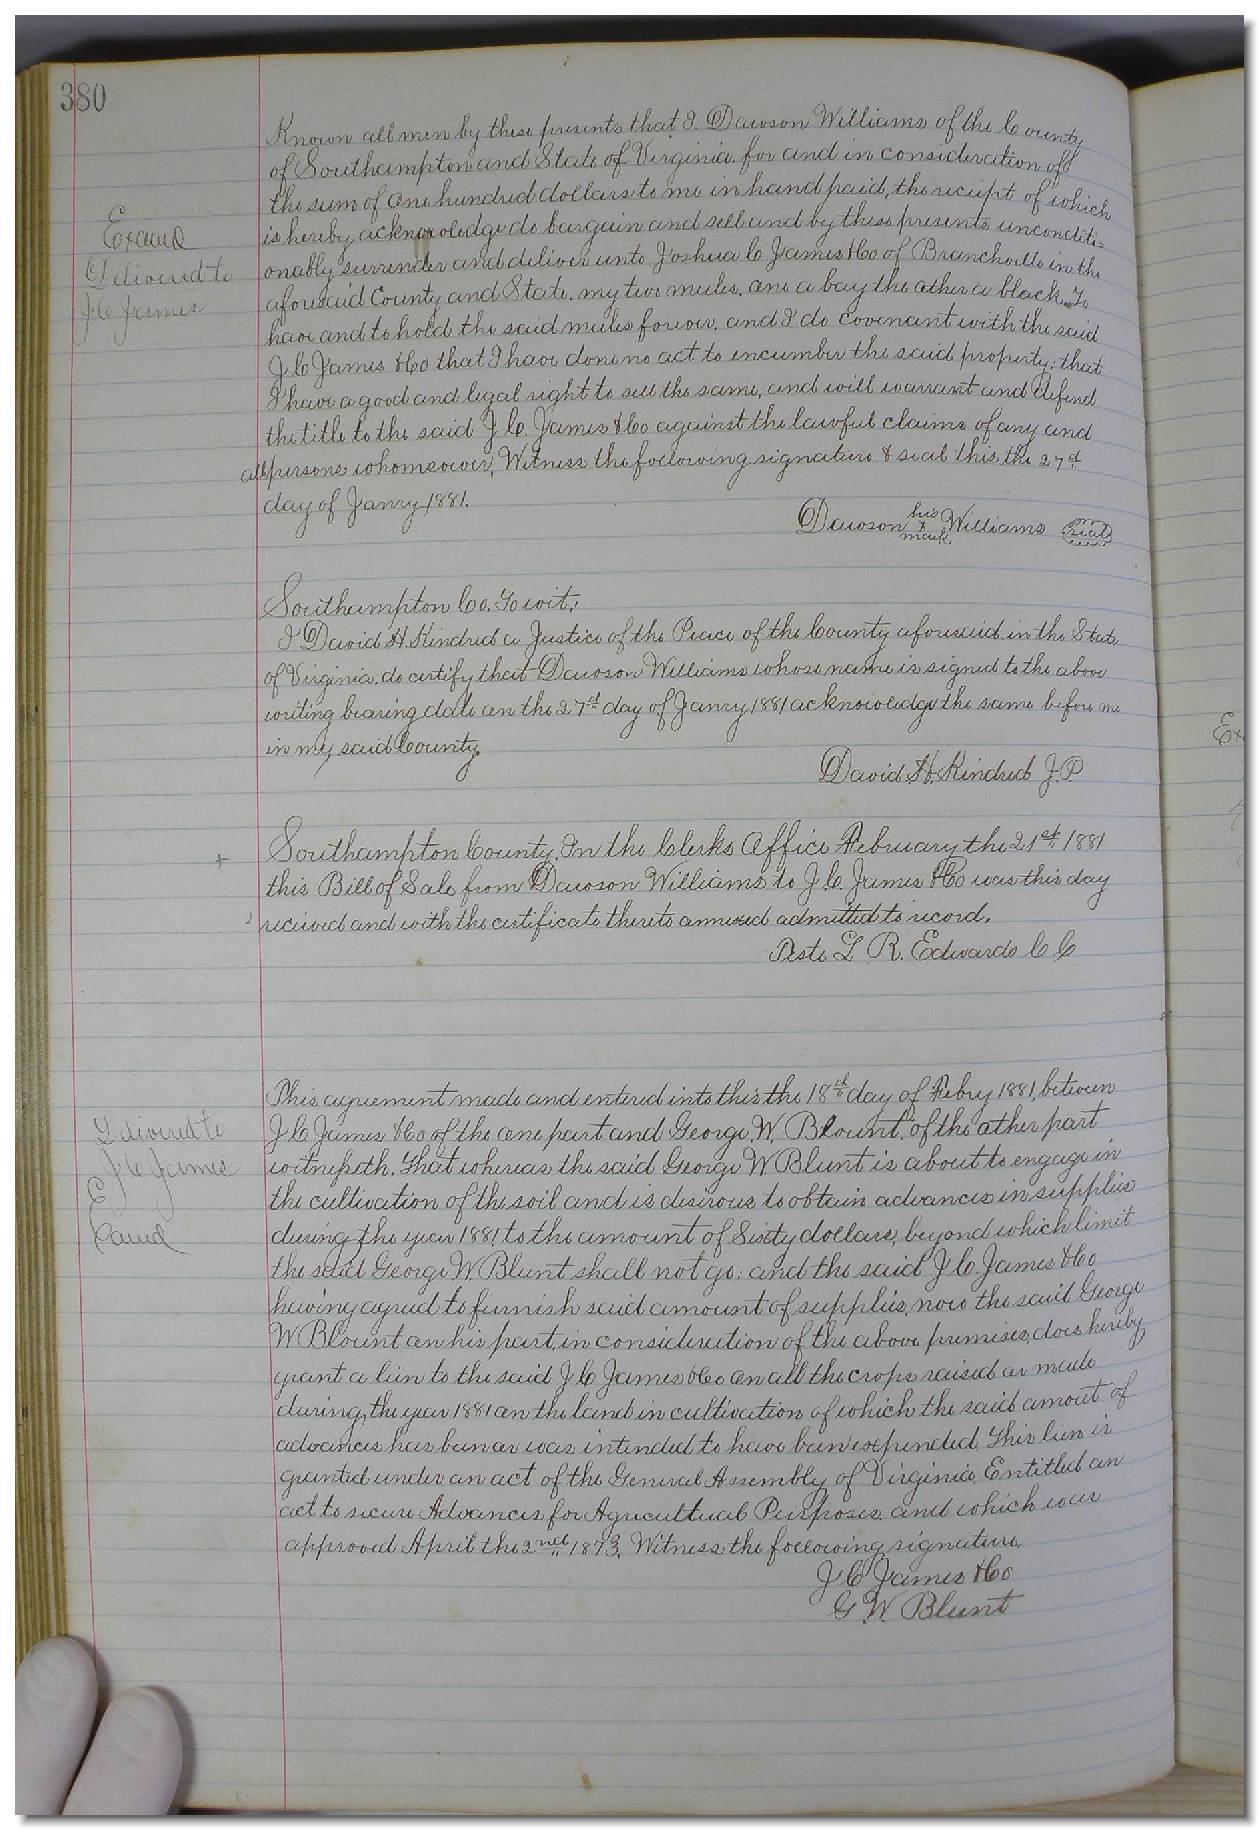 380
Known all men by these presents that I. Dawson Williams of the County
of Southampton and State of Virginia. for and in consideration of
the sum of one hundred dollars to me in hand paid, the receipt of which
is hereby acknowledge do bargain and sell and by these presents unconditi=
onally surrender and deliver unto Joshua C James & Co of Branchville in the
aforesaid County and State. my two mules. one a bay the other a black. To
have and to hold the said mules forever. and I do covenant with the said
J. C James & Co that I have done no act to encumber the said property: that
I have a good and legal right to sell the same, and will warrant and defend
the title to the said J. C. James & Co against the lawful claims of any and
all persons whomsoever, Witness the following signature & seal this the 27th
day of Janry 1881.
Examd
Delivered to
J C James
his
Dawson x Williams seal
mark
Southampton Co. To wit:
I David H. Kindred a Justice of the Peace of the County aforesaid in the State
of Virginia. do certify that Dawson Williams whose name is signed to the above
writing bearing date on the 27th day of Janry 1881 acknowledge the same before me
in my said County.
David H. Kindred J. P
Southampton County. In the Clerks Office February the 21st 1881
this Bill of Sale from Dawson Williams to J. C. James & Co was this day
received and with the certificate thereto annexed admitted to record.
Teste L R. Edwards C C
This agreement made and entered into this the 18th day of Febry 1881, between
J C James & Co of the one part and George. W. Blount. of the other part
witnesseth. That whereas the said George W Blunt is about to engage in
the cultivation of the soil and is desirous to obtain advances in supplies
during the year 1881 to the amount of Sixty dollars, beyond which limit
the said George W. Blunt shall not go: and the said J. C. James & Co
having agreed to furnish said amount of supplies, now the said George
W Blount on his part, in consideration of the above premises, does hereby
grant a lien to the said J. C James & Co on all the crops raised or made
during the year 1881 on the land in cultivation of which the said amout of
advances has been or was intended to have been expended. This lien is
granted under an act of the General Assembly of Virginia. Entitled an
act to secure Advances for Agricultural Purposes. and which was
approved April the 2nd 1873. Witness the following signature.
Delivered to
J C James
Examd
J C James & Co
G. W. Blunt
Ex